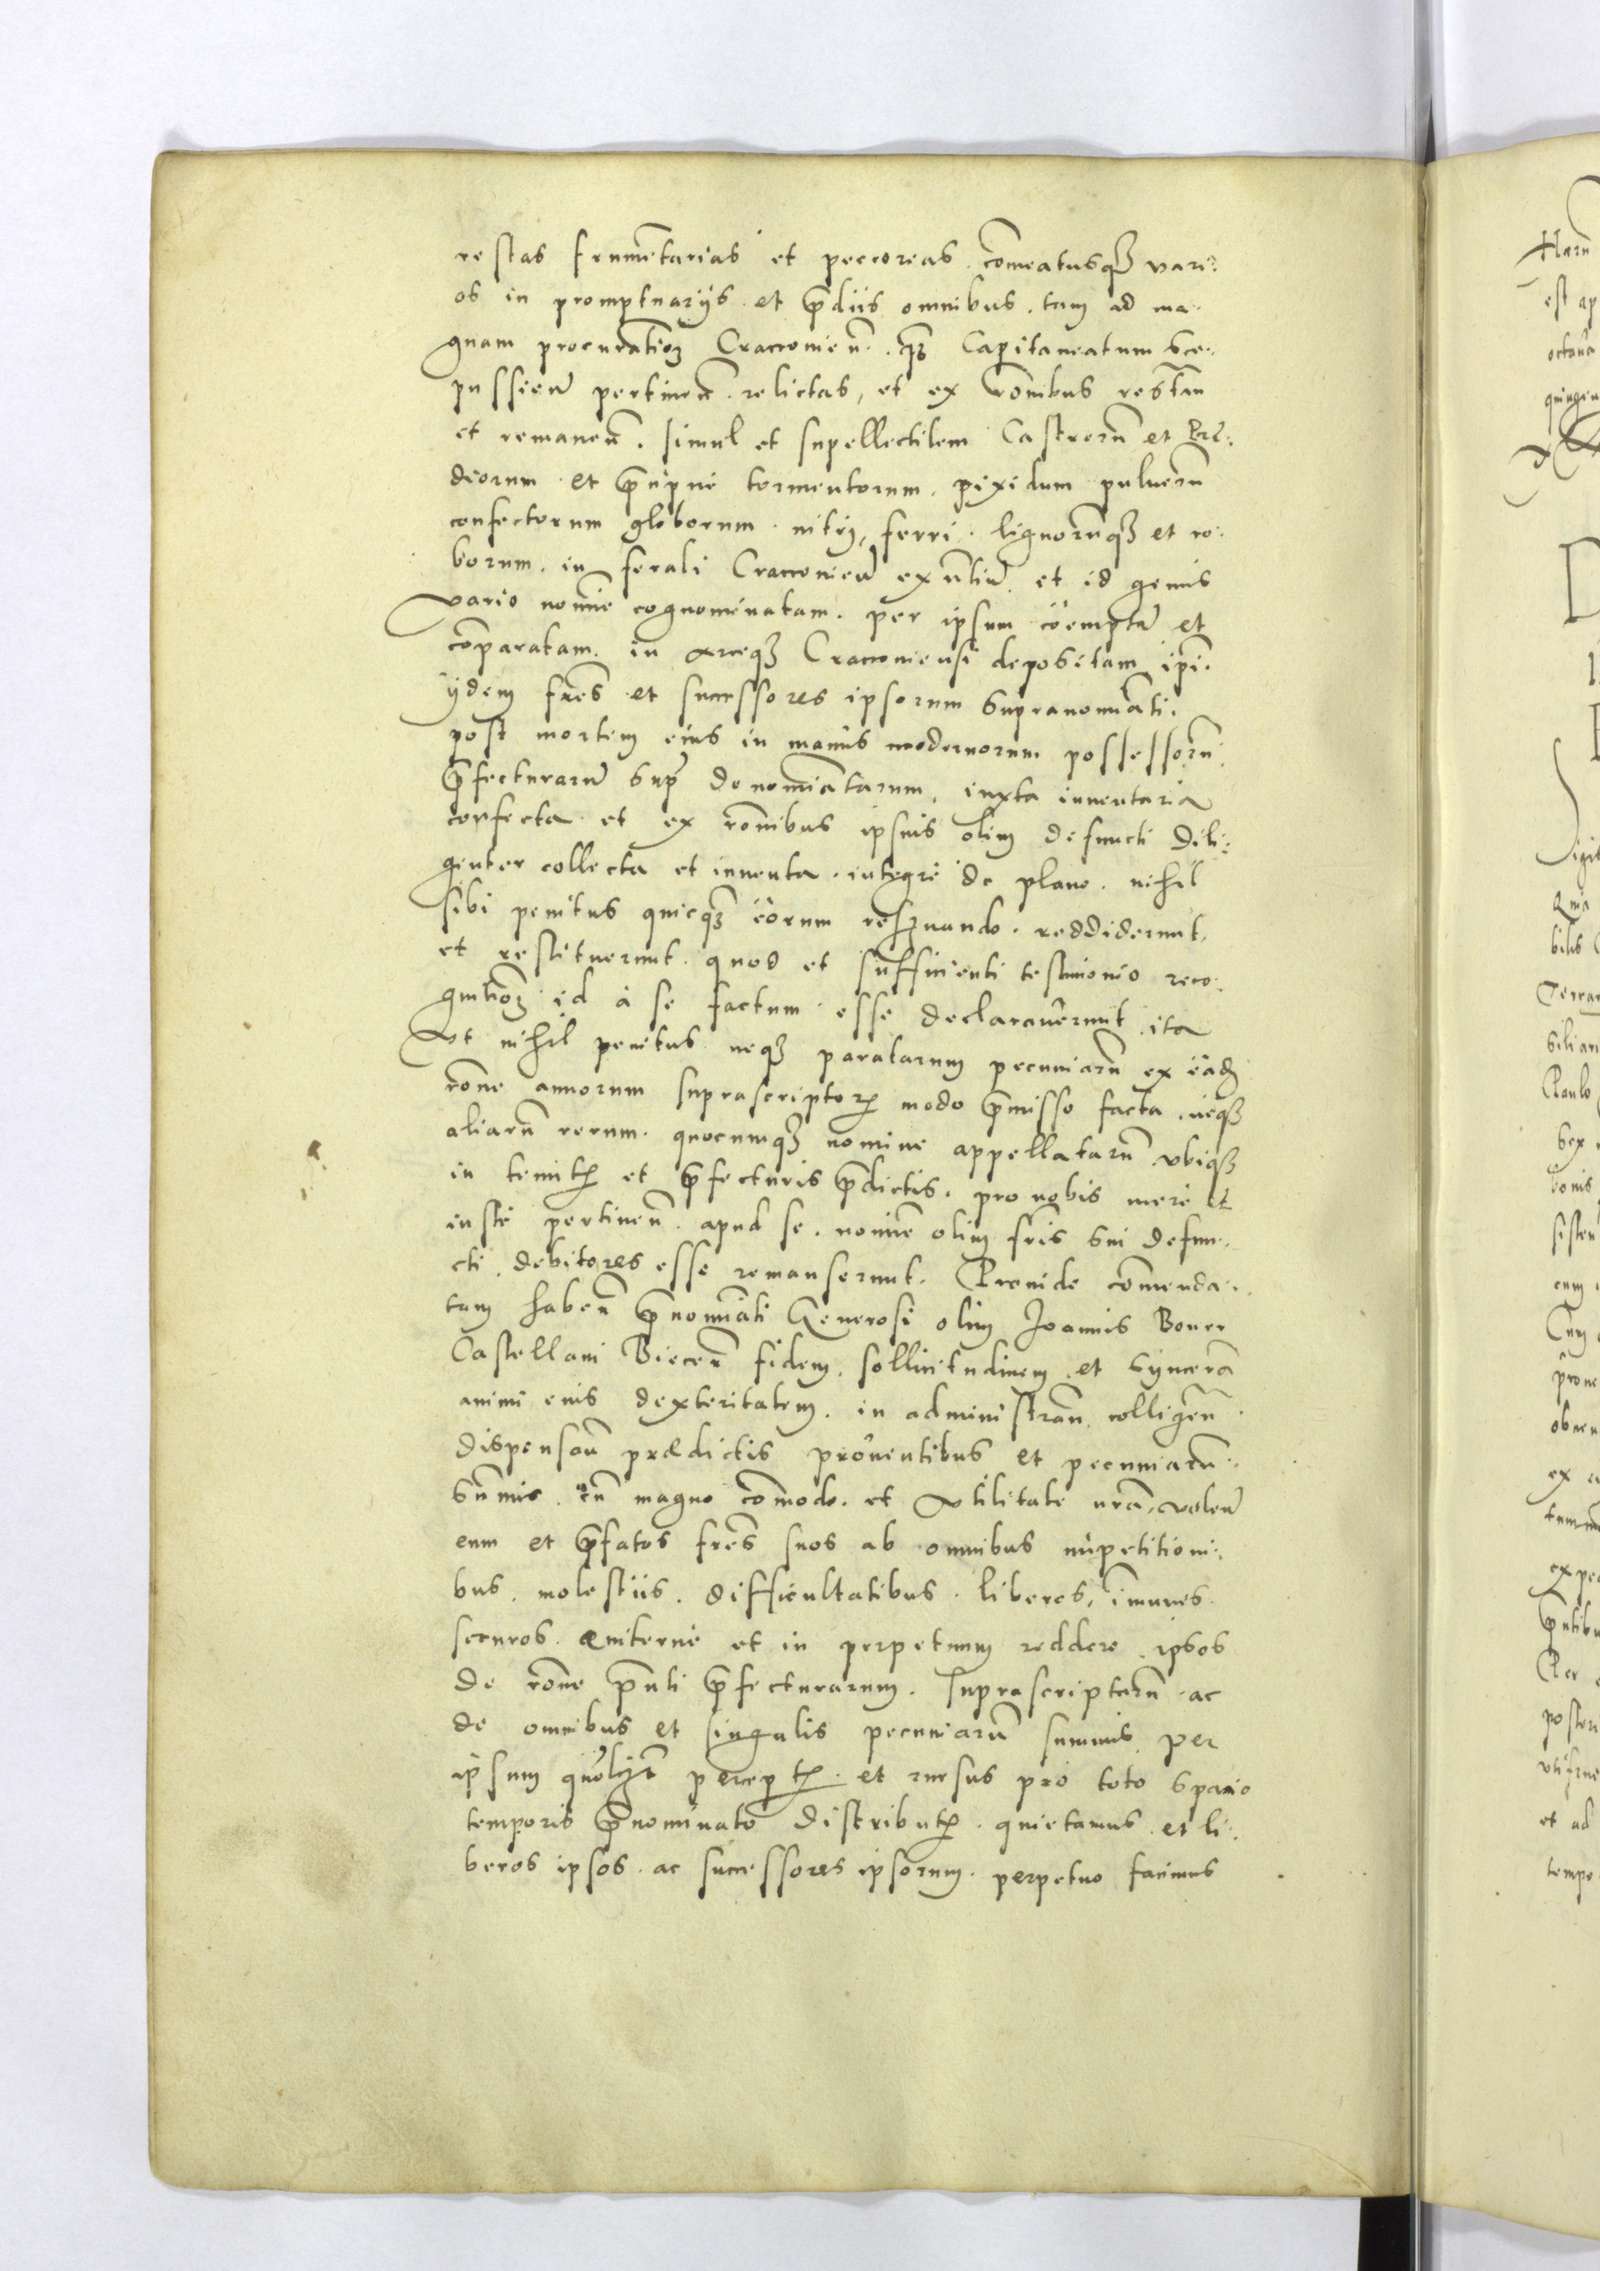 restas frumẽtarias et pecoreas. cõmeatusqꝫ vari:
os in promptuarijs et p̃dijs omnibus. tam ad ma-
gnam procuratioꝫ Cracouieñ. qꝫ Capitaneatum Sce-
pussieñ pertineñ relictas, et ex rõnibus restañ
et remaneñ. simul et supellectilem Castrorũ et Pre-
diorum et p̃cipue tormentorum. pixidum pulueru͂
confectorum globorum. nitrj, ferri. lignorũqꝫ et ro-
borum. in ferali Cracouieñ exñtiũ et id genus
vario noĩe cognominatam. per ipsum coemptã et
cõparatam. in arceqꝫ Cracouiensi depositam ip̃i.
ijdem frẽs et successores ipsorum supranominãti.
post mortem eius in manus modernorum possessorũ
p̃fecturarũ sup̃ denomiãtarum, iuxta inuentaria
confecta et ex rõnibus ipsius olim defuncti dili:
genter collecta et inuenta. integre de plano. nihil
sibi penitus quicqꝫ eorum reseruando. reddiderunt,
et restituerunt. quod et sufficienti testimonio reco-
gnitioꝫ id à se factum esse declarauerunt ita
Vt nihil penitus neqꝫ paratarum pecuniarũ ex eadẽ
rõne annorum suprascriptoꝝ modo p̃misso facta. neqꝫ
aliarũ rerum. quocumqꝫ nomine appellatarũ vbiqꝫ
in tenutis et p̃fecturis p̃dictis. pro nobis mere et
iuste pertineñ. apud se. noĩe olim fr̃is sui defun-
cti. debitores esse remanserunt. Proinde cõmenda-
tam habeñ p̃nomiãti Generosi olim Joannis Boner
Castellani Bieceñ fidem. sollicitudinem et synceram
animi eius dexteritatem. in administrañ colligeñ
dispensañ prædictis prouentibus et pecuniarũ
sũmis cũ magno cõmodo. et vtilitate nr̃a. voleñ
eum et p̃fatos frẽs suos ab omnibus impetitioni-
bus. molestiis. difficultatibus. liberos, im̃unes
securos. æuiterne et in perpetuum reddere. ipsos
de rõne p̃nti p̃fecturarum. suprascriptarũ ac
de omnibus et singulis pecuniarũ summis per
ipsum quolibet percept. et rursus pro toto spacio
temporis p̃nominato distribut. quietamus et li-
beros ipsos. ac successores ipsorum. perpetuo facimus